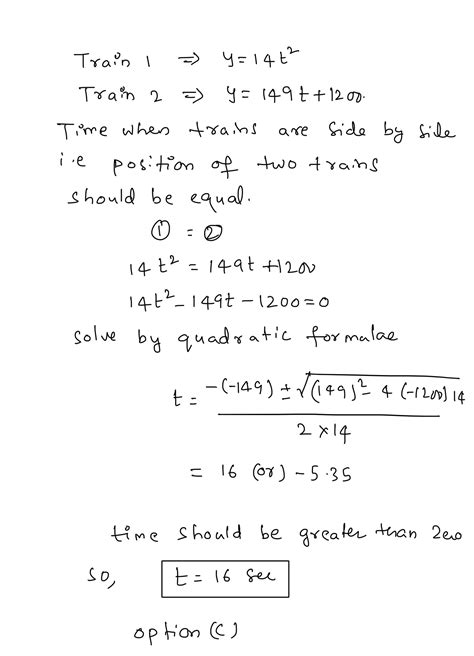 Train 1 ⇒ y = 14t²
Train 2 ⇒ y = 149t + 1200.
Time when trains are side by side
i.e position of two trains
should be equal.
① = ②
14t² = 149t + 1200
14t² - 149t - 1200 = 0
solve by quadratic formalae
t = (-(-149) ± √((149)² - 4(-1200)14)) / (2 × 14)
= 16 (or) - 5.35
time should be greater than zero
so, t = 16 sec
option (C)